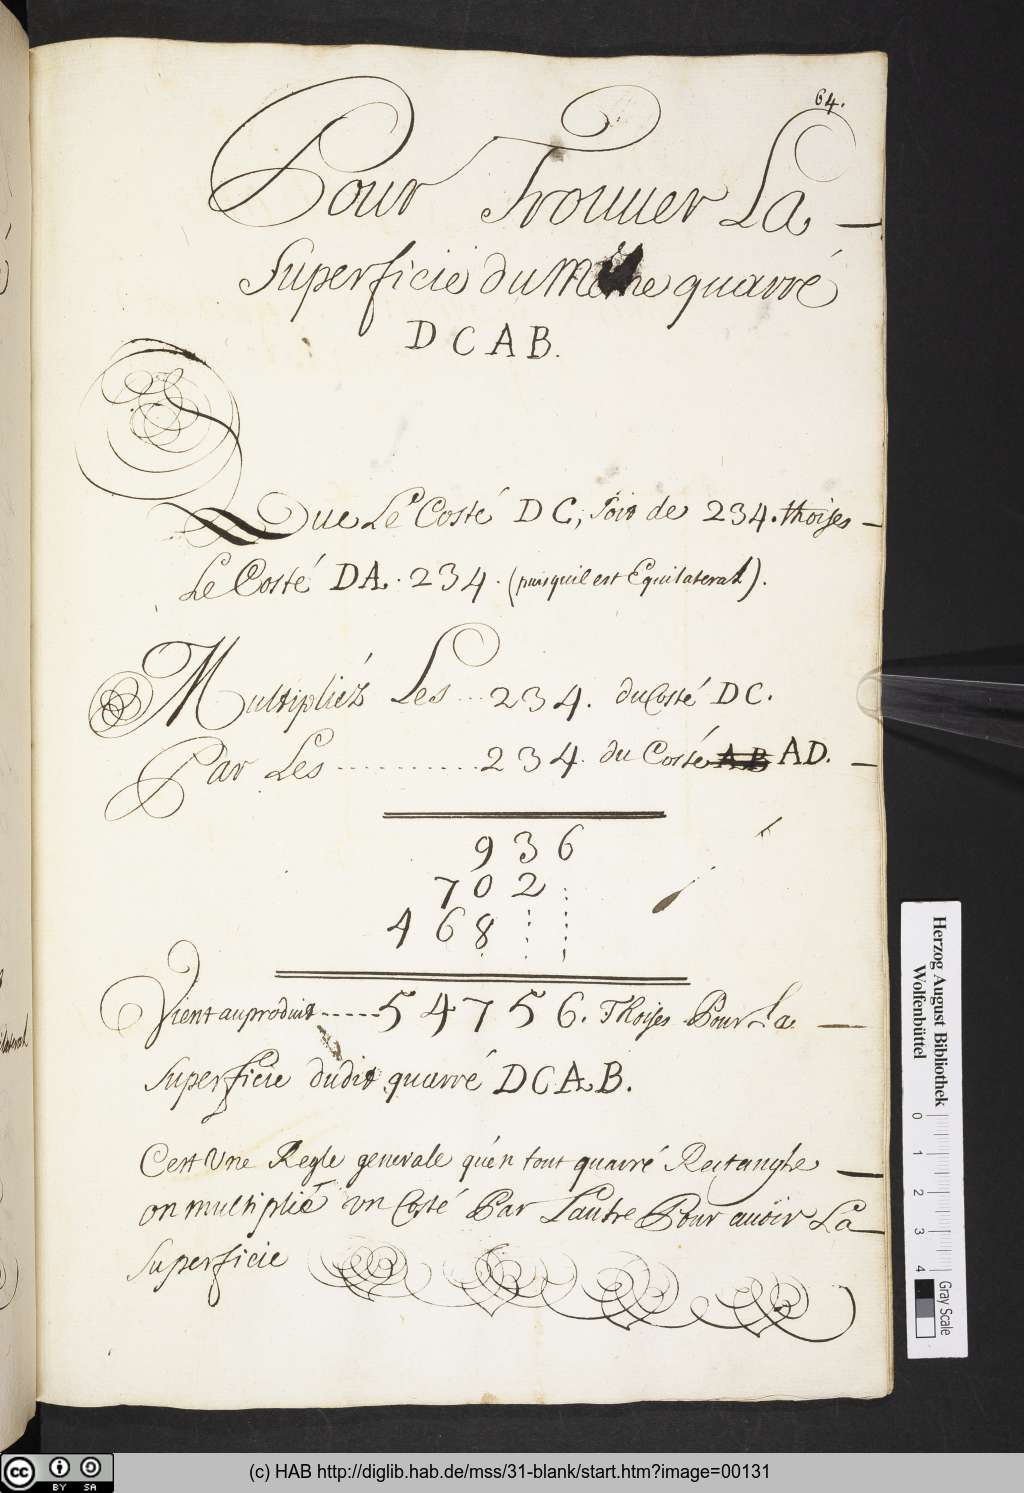 64.
Pour Trouuer La
Superficie du Même quarré
D C A B.
Que Le Costé D C, soit de 234. thoises
Le Costé D A. 234. (puisquil est Equilateral).
Multipliéz Les ... 234. du Costé D C.
Par Les .......... 234. du Costé A B A D.
9 3 6
7 0 2 .
4 6 8 . .
Vient au produit ----- 5 4 7 5 6. Thoises Pour La
Superficie dudit quarré D C A B.
Cest Une Regle generale qu'en tout quarré Rectangle
on multiplié un Costé Par Lautre Pour auöir La
Superficie
Herzog August Bibliothek
Wolfenbüttel
0 1 2 3 4
Gray Scale
cc BY SA
(c) HAB http://diglib.hab.de/mss/31-blank/start.htm?image=00131